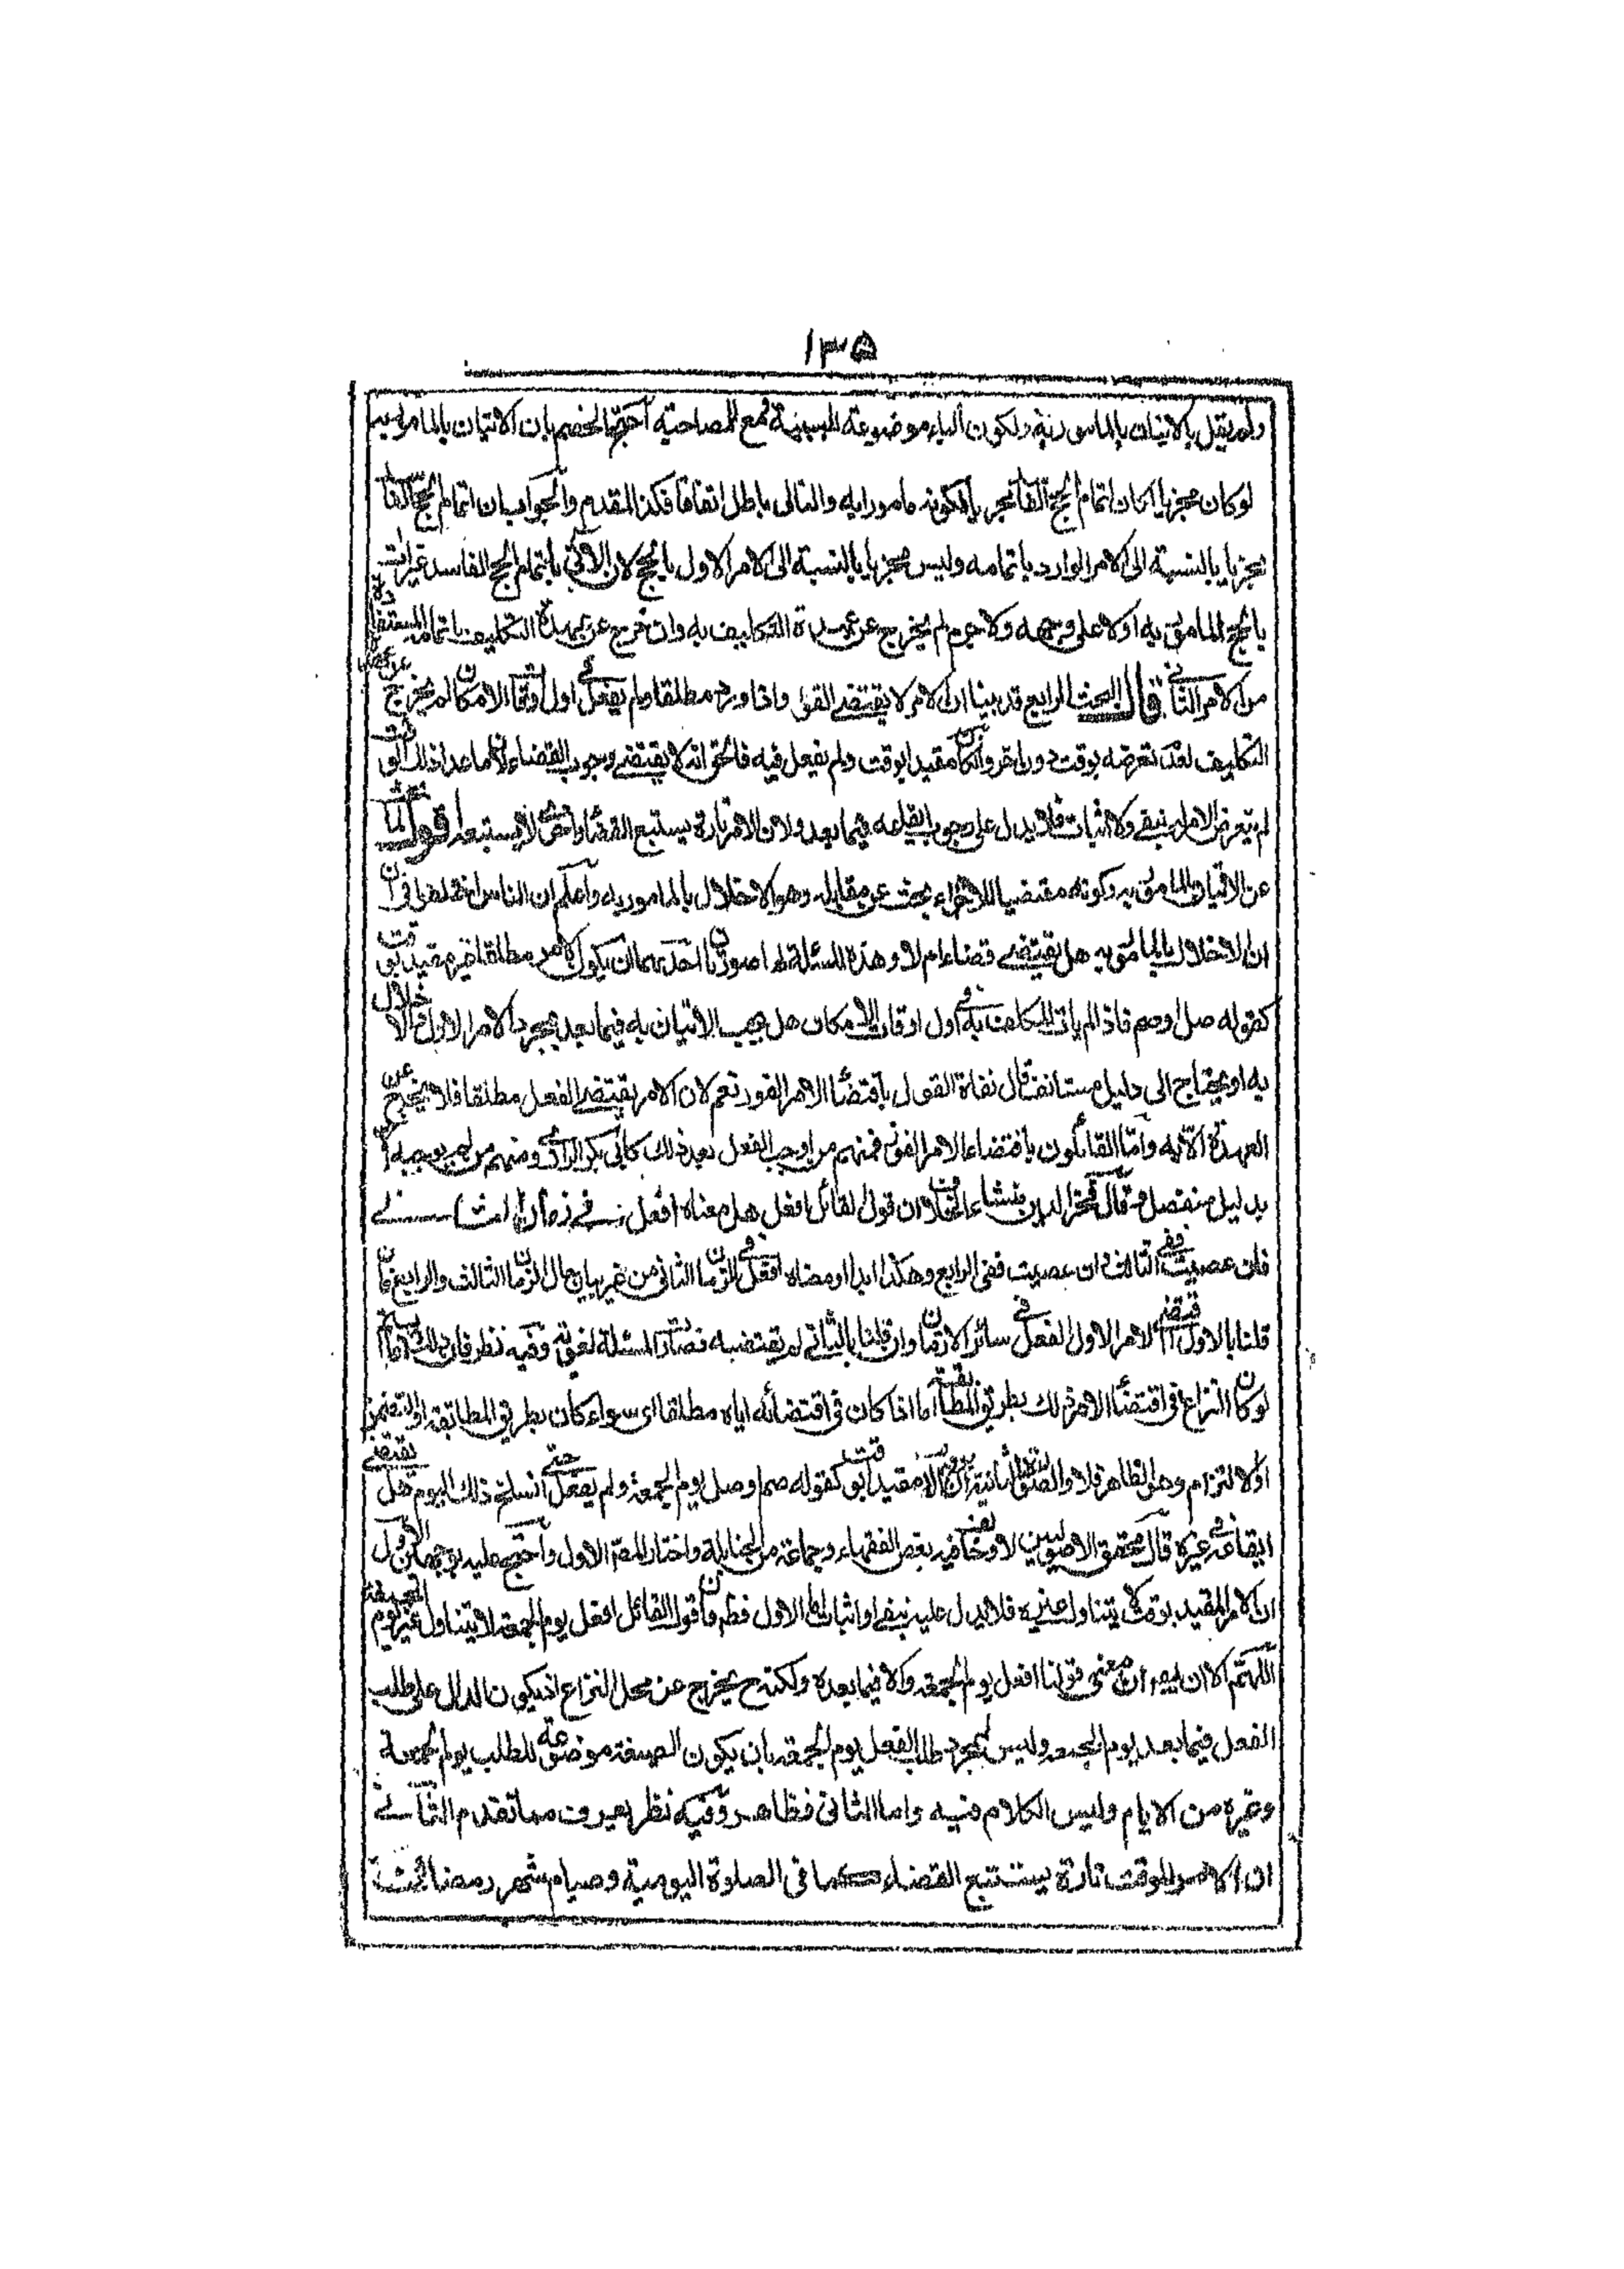 ١٣٥
ولم يقل بالاتيان بالمامور به ولكون الباء موضوعة للسببية مع المصاحبة احتج الخصم بان الاتيان بالمامور به
لو كان مجزيا لكان اتمام الحج الفاسد مجزيا لكونه مامورا به والتالى باطل اتفاقا فكذا المقدم والجواب ان اتمام الحج الفاسد
مجزيا بالنسبة الى الامر الوارد باتمامه وليس مجزيا بالنسبة الى الامر الاول بالحج لان الاتى باتمام الحج الفاسد غير ات
بالحج المامور به اولا على وجهه ولا جرم لم يخرج عن عهدة التكليف به وان خرج عن عهدة التكليف باتمامه المستفاد
من الامر الثانى قال البحث الرابع قد بينا ان الامر لا يقتضى الفور واذا ورد مطلقا ولم يفعل فى اول اوقات الامكان لم يخرج عن عهدة
التكليف لعدم تعرضه بوقت دون اخر وان كان مقيدا بوقت ولم يفعل فيه فالحق انه لا يقتضى وجوب القضاء لان ما عدا ذلك الوقت
لم يتعرض الامر له بنفى ولا اثبات فلا يدل على وجوب ايقاعه فيما بعد ولان الامر تارة يستتبع القضاء واخرى لا يستتبعه اقول لما بحث
عن الاتيان بالمامور به وكونه مقتضيا للاجزاء بحث عن مقابله وهو الاخلال بالمامور به واعلم ان الناس اختلفوا فى
ان الاخلال بالمامور به هل يقتضى قضاءه ام لا وهذه المسئلة لها صورتان احديهما ان يكون الامر مطلقا غير مقيد بوقت
كقوله صل او صم فاذا لم يات المكلف به فى اول اوقات الامكان هل يجب الاتيان به فيما بعد بمجرد الامر الاول فى الاخلال
به او يحتاج الى دليل مستانف قال نفاة القول باقتضاء الامر الفور نعم لان الامر يقتضى الفعل مطلقا فلا يخرج عن
العهدة الا به واما القائلون باقتضاء الامر الفور فمنهم من اوجب الفعل بعد ذلك كابى بكر الرازى ومنهم من لم يوجبه الا
بدليل منفصل قال فخر الدين منشاء الخلاف ان قول القائل افعل هل معناه افعل فى زمان الثانى
فان عصيت ففى الثالث فان عصيت ففى الرابع وهكذا ابدا او معناه افعل فى الزمان الثانى من غير بيان حال الزمان الثالث والرابع فان
قلنا بالاول اقتضى الامر الاول الفعل فى سائر الازمان وان قلنا بالثانى لم يقتضه فصارت المسئلة لغوية وفيه نظر فان ذلك انما يتم
لو كان النزاع فى اقتضاء الامر ذلك بطريق المطابقة اما اذا كان فى اقتضائه اياه مطلقا اى سواء كان بطريق المطابقة او التضمن
او الالتزام وهو الظاهر فلا والصورة الثانية ان يرد الامر مقيدا بوقت كقوله صم او صل يوم الجمعة ولم يفعل حتى انسلخ ذلك اليوم هل يقتضى
ايقاعه فى غيره قال محققوا الاصوليين لا وخالف فيه بعض الفقهاء وجماعة من الحنابلة واختار المصنف الاول واحتج عليه بوجهين الاول
ان الامر المقيد بوقت لا يتناول غيره فلا يدل عليه بنفى او اثبات اما الاول فظاهر فان قول القائل افعل يوم الجمعة لا يتناول غير يوم الجمعة
اللهم الا ان يقال ان معنى قولنا افعل يوم الجمعة والا فيما بعده ولكنه ح يخرج عن محل النزاع اذ يكون الدال على طلب
الفعل فيما بعد يوم الجمعة وليس لمجرد طلب الفعل يوم الجمعة بان يكون الصيغة موضوعة للطلب يوم الجمعة
وغيره من الايام وليس الكلام فيه واما الثانى فظاهر وفيه نظر يعرف مما تقدم الثانى
ان الامر الموقت تارة يستتبع القضاء كما فى الصلوة اليومية وصيام شهر رمضان